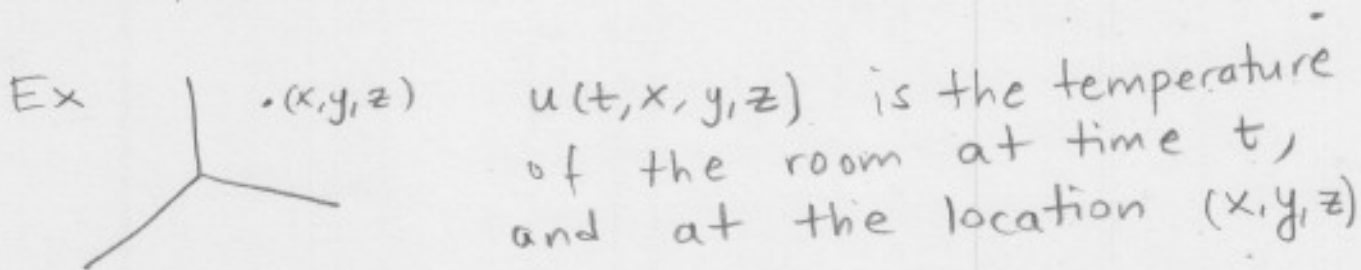 Ex .(x,y,z) u(t,x,y,z) is the temperature
of the room at time t,
and at the location (x,y,z)